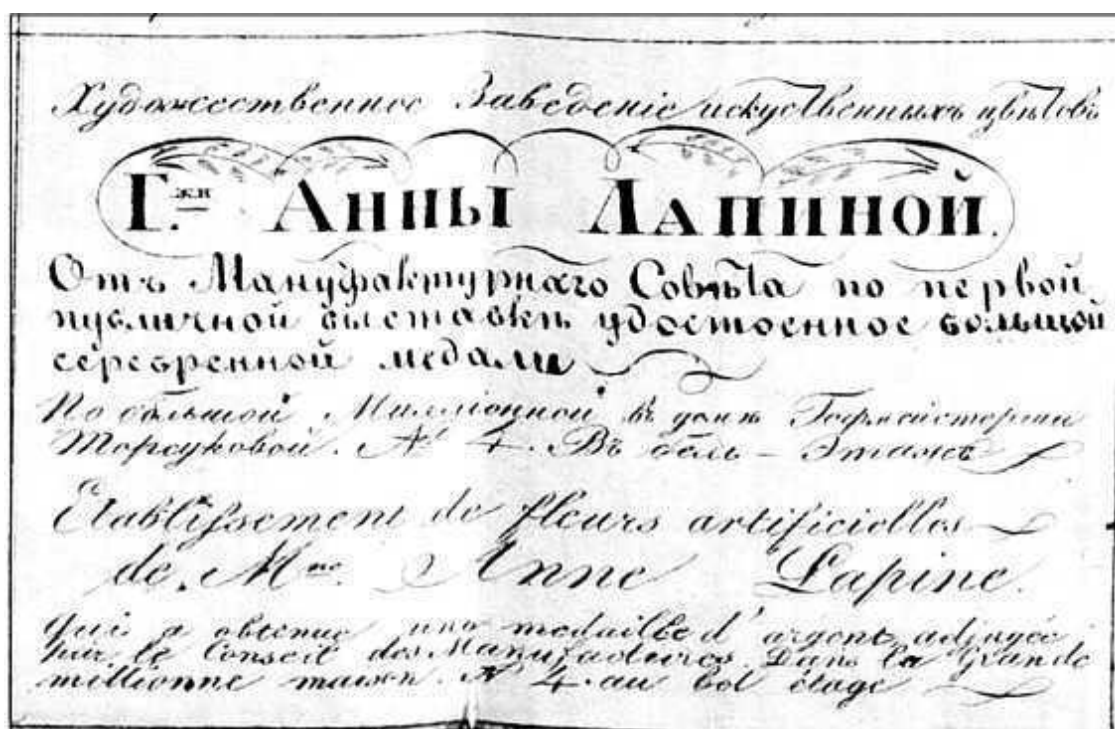 Художественное Заведеніе искуственныхъ цвѣтовъ
Г.жи Анны Лапиной.
Отъ Мануфактурнаго Совѣта по первой
публичной выставкѣ удостоенное большой
серебренной медали
По большой Милліонной въ домѣ Гофмейстерши
Торсуковой. № 4. Въ бель-Этажѣ
Etablissement de fleurs artificielles
de Mme. Anne Lapine.
qui a obtenue une medaille d'argent adjugée
par le Conseil des Manufactures. Dans la Grande
millionne maison. № 4. au bel étage